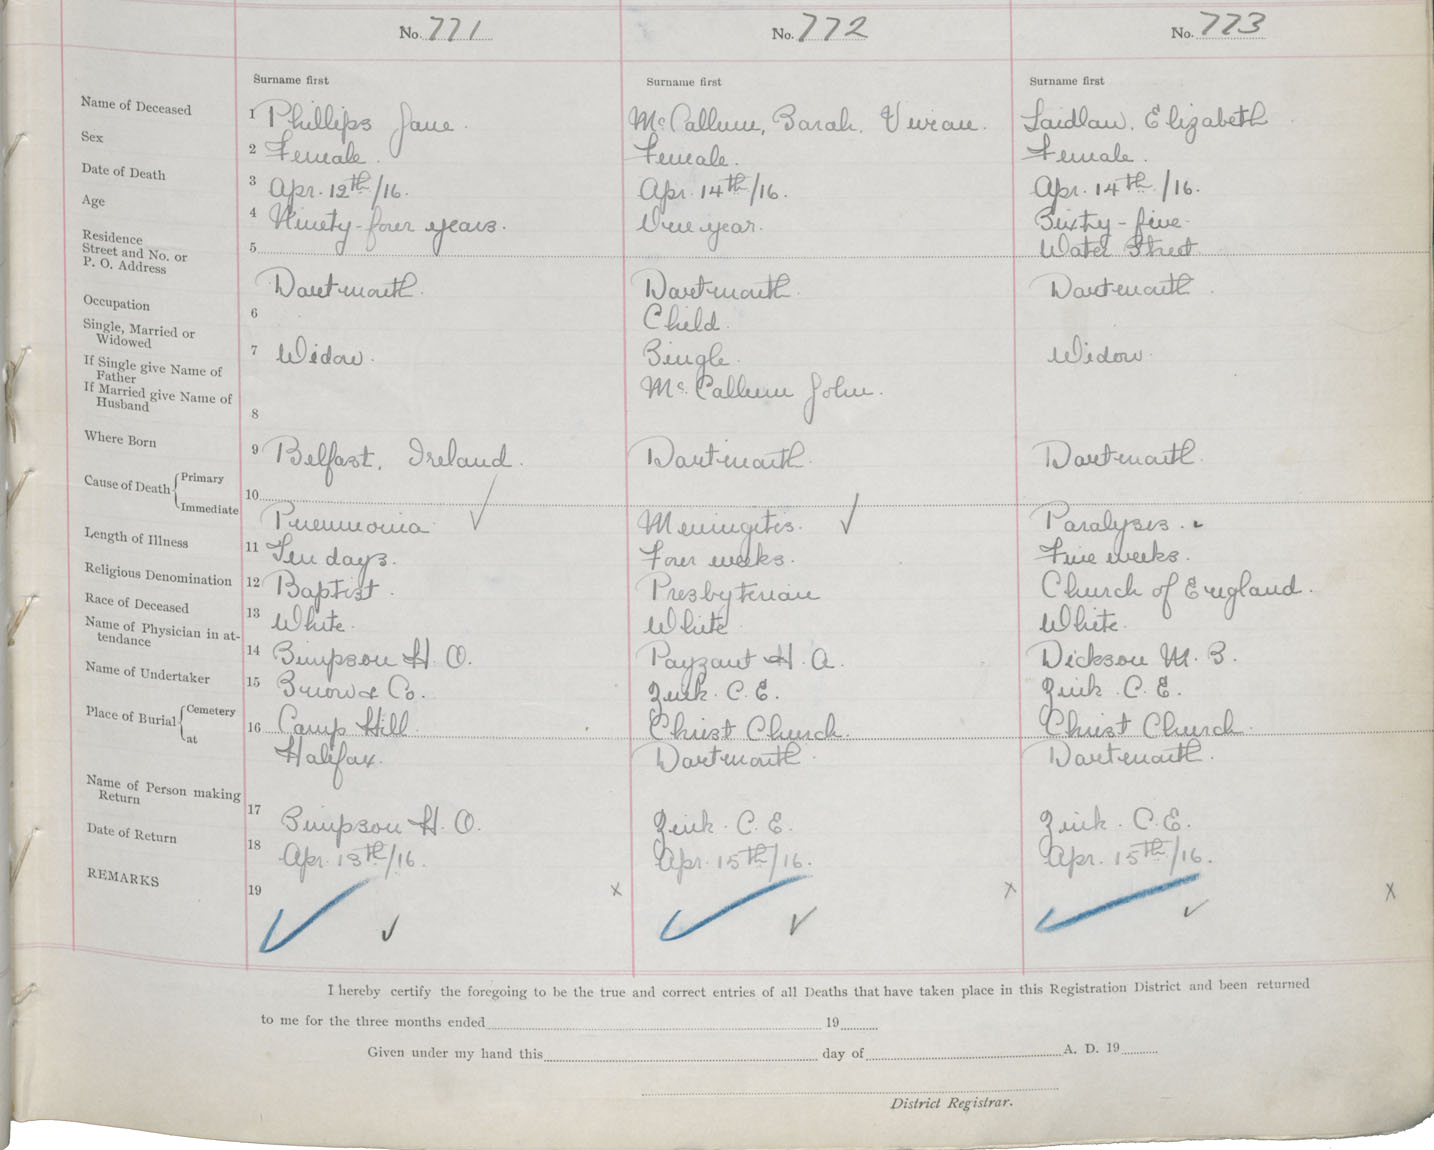 No. 771 No. 772 No. 773
Surname first Surname first Surname first
Name of Deceased 1 Phillips Jane. McCallum, Sarah, Vivian. Laidlaw, Elizabeth
Sex 2 Female. Female. Female.
Date of Death 3 Apr. 12th/16. Apr. 14th/16. Apr. 14th/16.
Age 4 Ninety-four years. One year. Sixty-five.
Residence Water Street
Street and No. or 5
P. O. Address Dartmouth. Dartmouth. Dartmouth.
Occupation 6 Child.
Single, Married or
Widowed 7 Widow. Single. Widow.
If Single give Name of
Father McCallum John.
If Married give Name of
Husband 8
Where Born 9 Belfast, Ireland. Dartmouth. Dartmouth.
Cause of Death Primary
10
Immediate Pneumonia Meningitis. Paralysis.
Length of Illness 11 Ten days. Four weeks. Five weeks.
Religious Denomination 12 Baptist. Presbyterian Church of England.
Race of Deceased 13 White. White White.
Name of Physician in at-
tendance 14 Simpson H. O. Payzant H. A. Dickson M. S.
Name of Undertaker 15 Snow & Co. Zink. C. E. Zink. C. E.
Place of Burial Cemetery 16 Camp Hill Christ Church. Christ Church.
at Halifax. Dartmouth. Dartmouth.
Name of Person making
Return 17 Simpson H. O. Zink. C. E. Zink. C. E.
Date of Return 18 Apr. 13th/16. Apr. 15th/16. Apr. 15th/16.
REMARKS 19 x x x
I hereby certify the foregoing to be the true and correct entries of all Deaths that have taken place in this Registration District and been returned
to me for the three months ended 19
Given under my hand this day of A. D. 19
District Registrar.